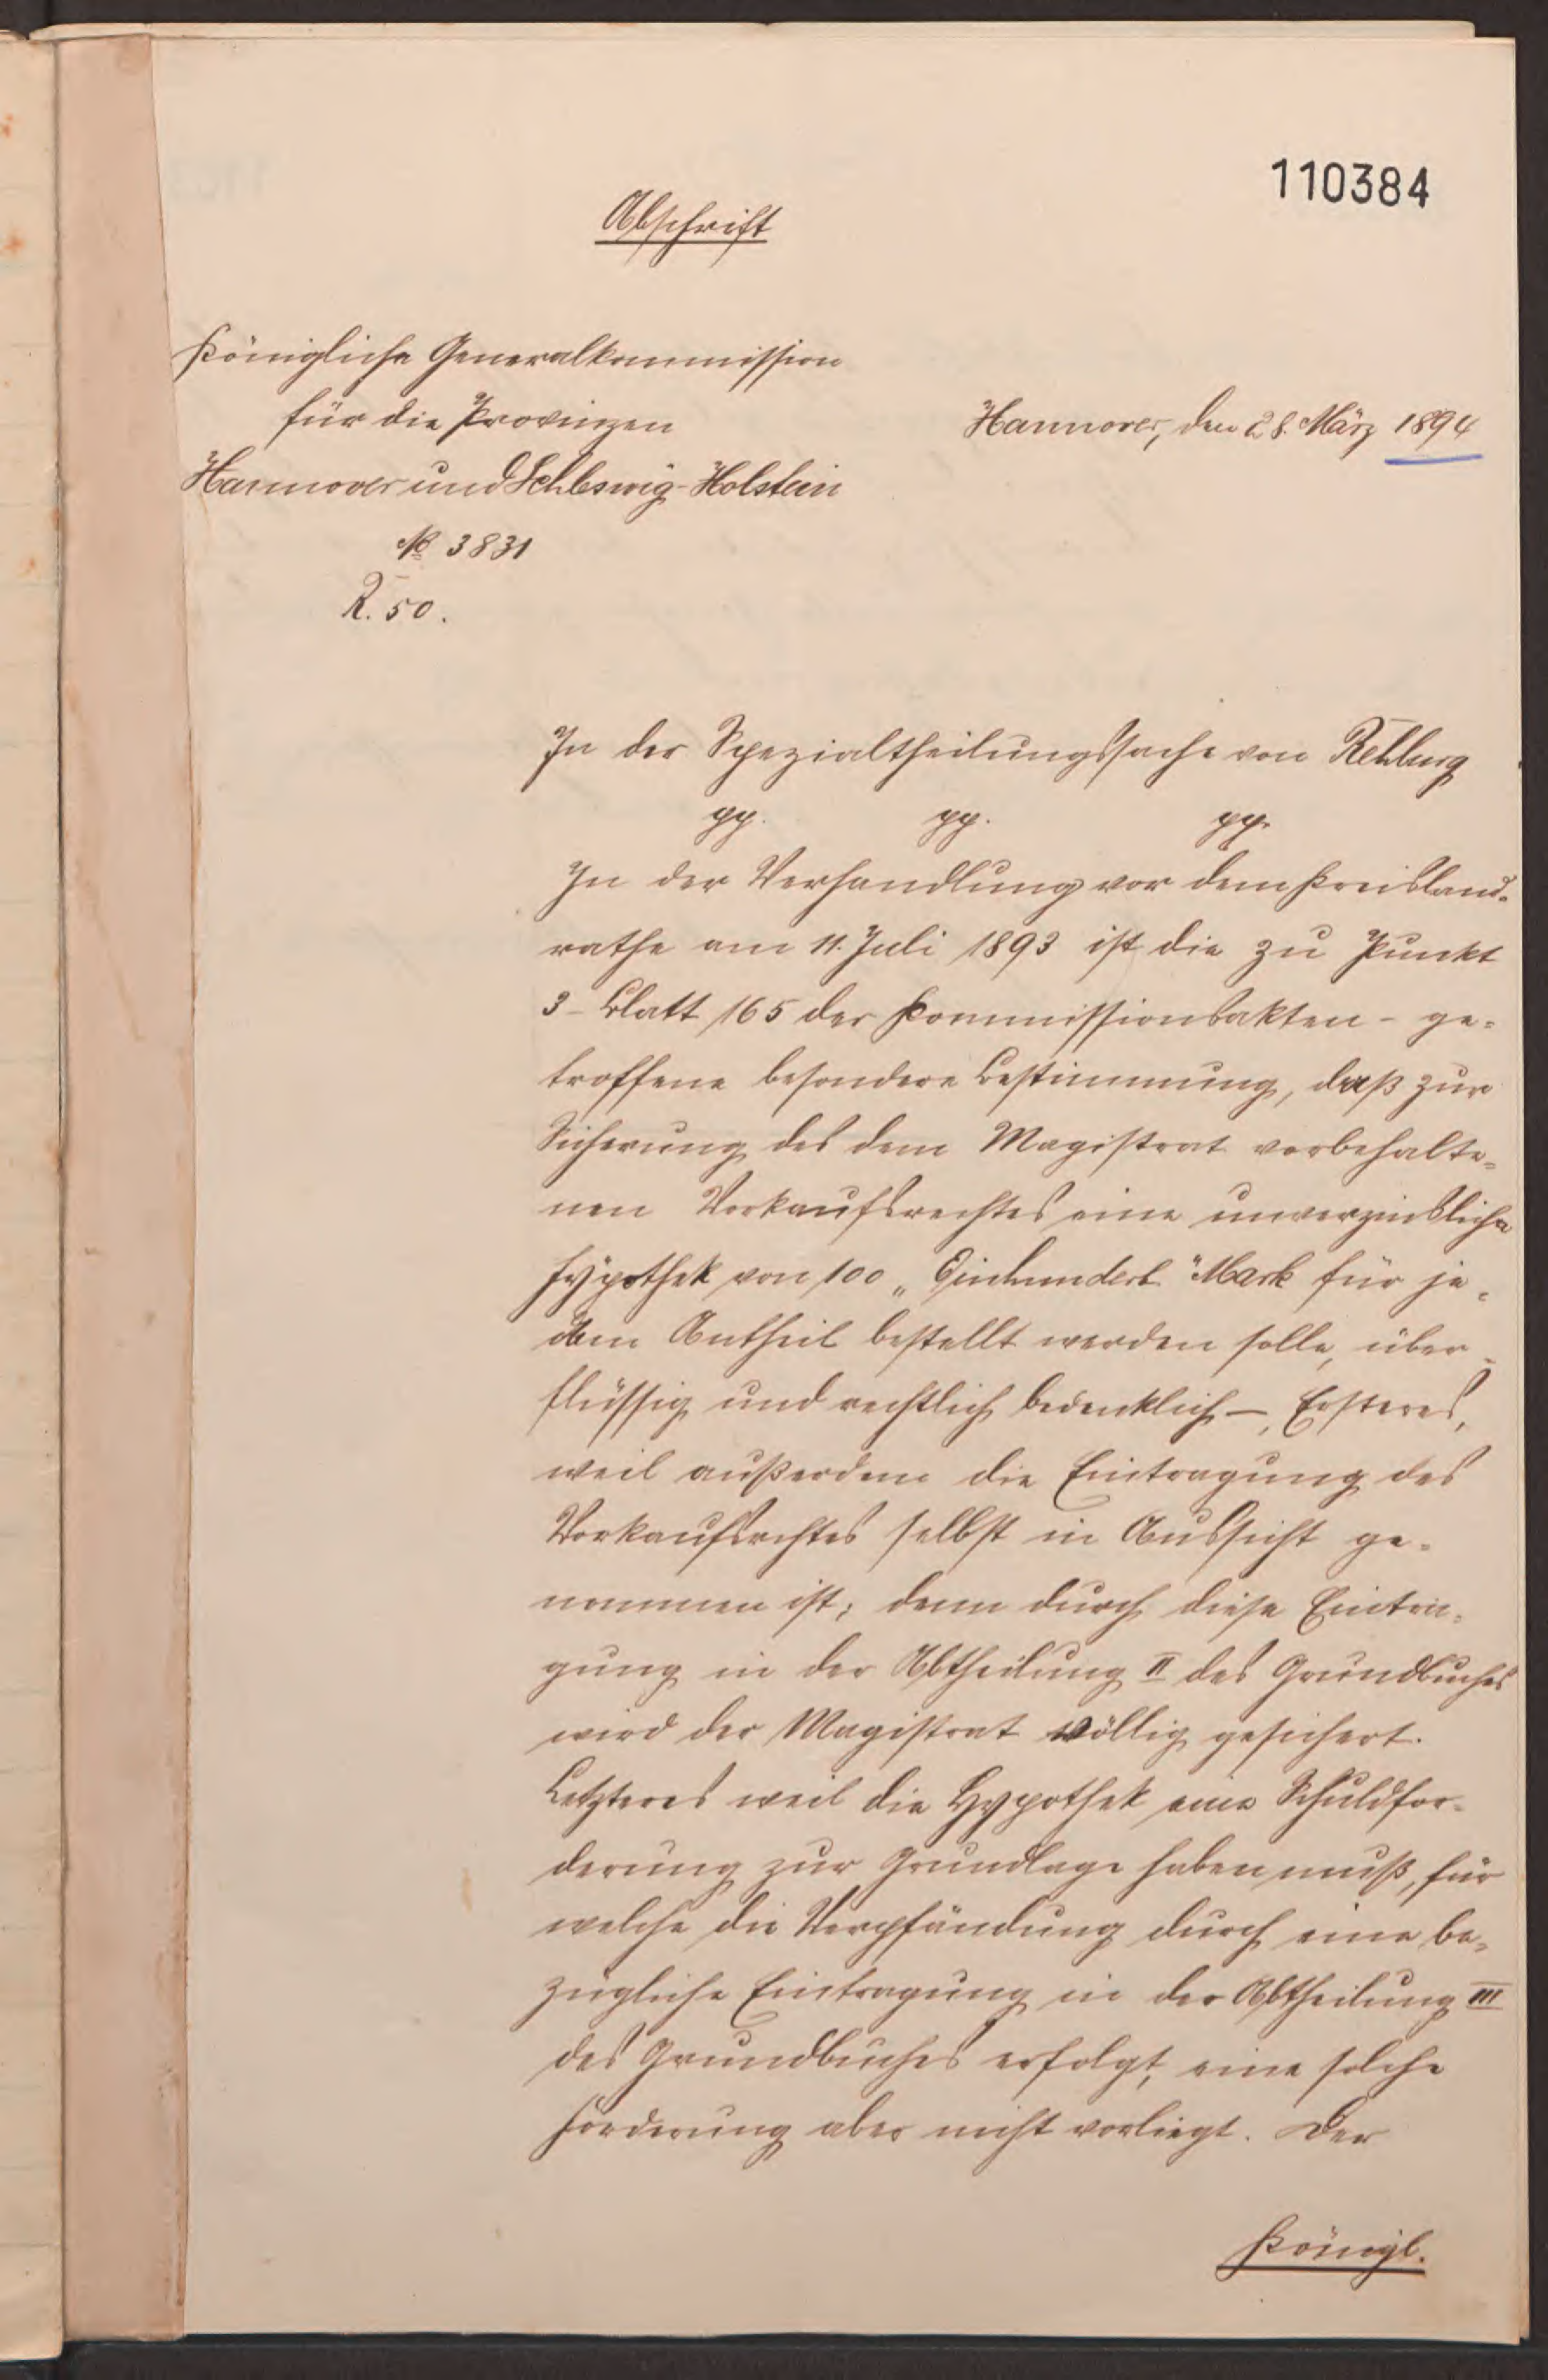 110384
Abschrift
Königliche Generalkommission
für die Provinzen
Hannover und Schleswig-Holstein
Hannover, den 28. März 1894
№ 3831
R. 50.
In der Spezialtheilungssache von Rehburg
pp. pp. pp.
In der Verhandlung vor dem Kreisland-
rathe am 11. Juli 1893 ist die zu Punkt
3 - Blatt 165 der Kommissionsakten - ge-
troffene besondere Bestimmung, daß zur
Sicherung des dem Magistrat vorbehalte-
nen Vorkaufsrechtes eine unverzinsliche
Hypothek von 100 „Einhundert" Mark für je-
den Antheil bestellt werden solle, über-
flüssig und rechtlich bedenklich -, Ersteres,
weil außerdem die Eintragung des
Vorkaufsrechtes selbst in Aussicht ge-
nommen ist; denn durch diese Eintra-
gung in der Abtheilung II des Grundbuches
wird der Magistrat völlig gesichert.
Letzteres weil die Hypothek eine Schuldfor-
derung zur Grundlage haben muß, für
welche die Verpfändung durch eine be-
zügliche Eintragung in der Abtheilung III
des Grundbuches erfolgt, eine solche
Forderung aber nicht vorliegt. Der
Königl.